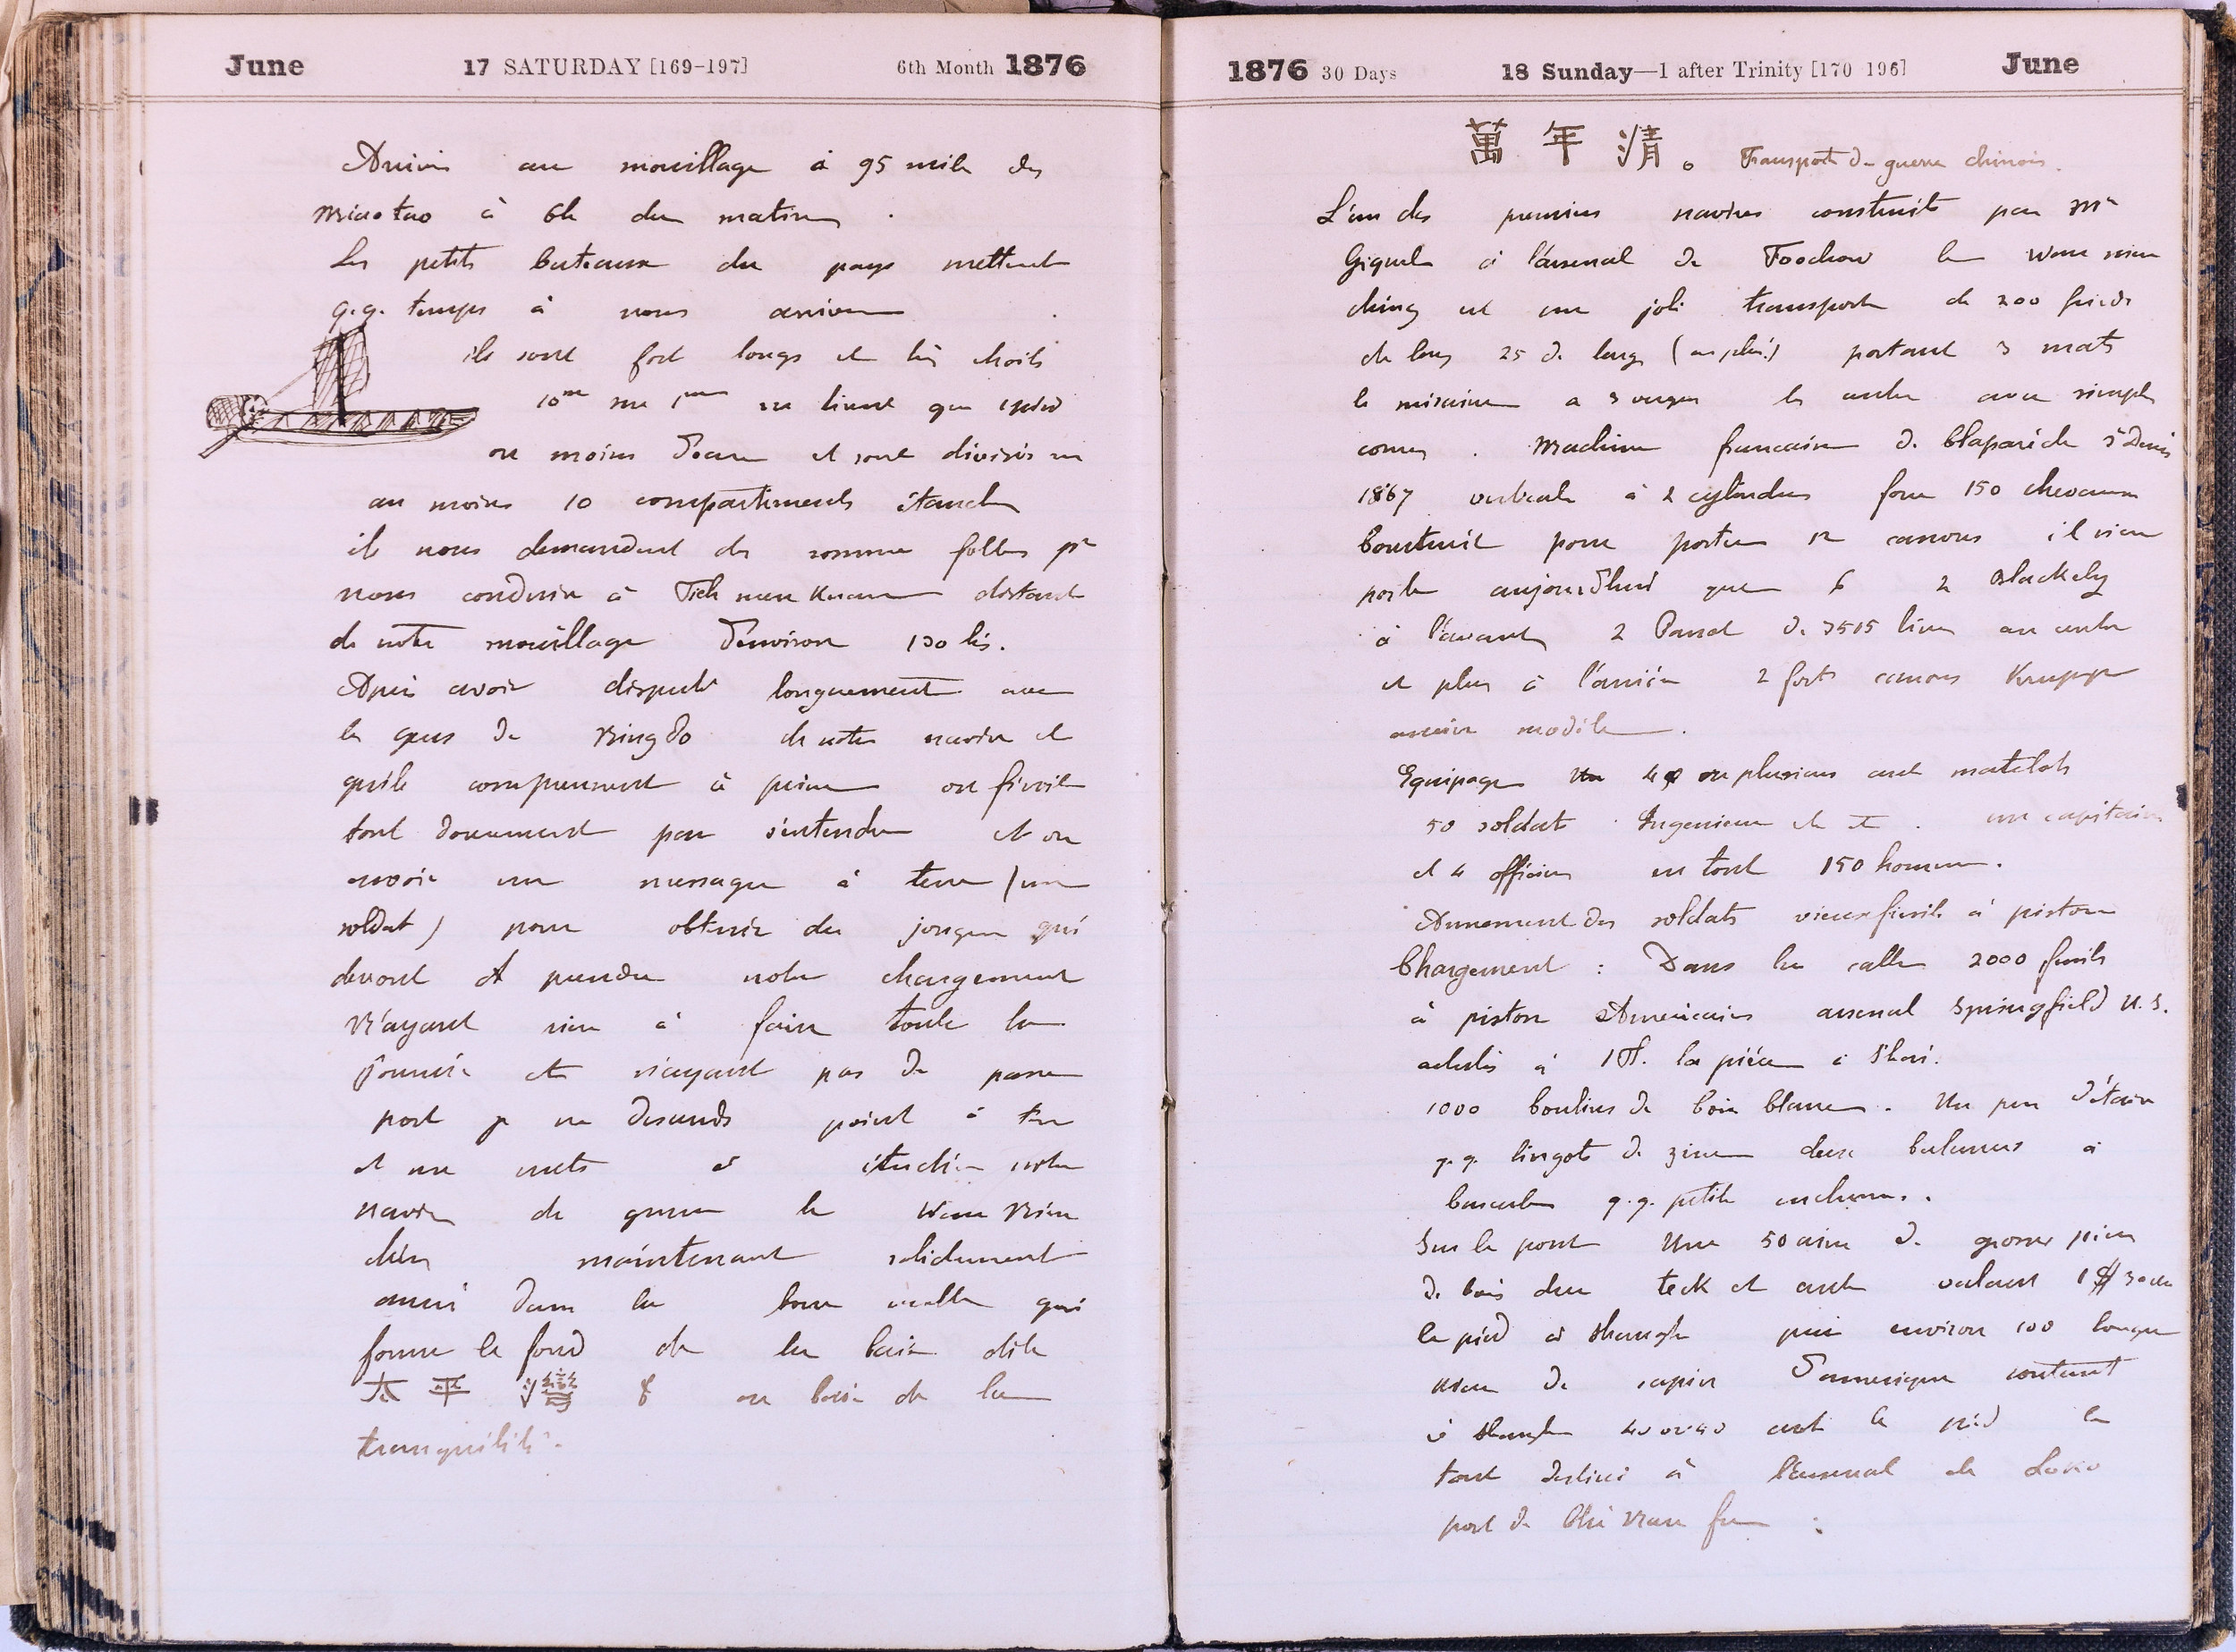 June 17 SATURDAY [169-197] 6th Month 1876
Arrivés au mouillage à 95 mile des
Miao tao à 6h du matin.
Les petits bateaux du pays mettent
q.q. temps à nous arriver
ils sont fort longs et très étroits
10m sur 1m ne tirent que 1 pied
ou moins d'eau et sont divisés en
au moins 10 compartiments étanches
ils nous demandent des somme folles pr
nous conduire à Tieh men Kuan distant
de notre mouillage d'environ 130 lis.
Après avoir disputé longuement avec
les gens de Ningpo de notre navire et
qu'ils comprennent à peine on finit
tout doucement par s'entendre et on
envoie un messager à terre (un
soldat) pour obtenir des jonques qui
devont prendre notre chargement
N'ayant rien à faire toute la
journée et n'ayant pas de passe
port je ne descends point à terre
et me mets à étudier notre
navire de guerre le Wan Nien
chin maintenant solidement
ancré dans la boue molle qui
forme le fond de la baie dite
太平灣 ou baie de la
tranquilité.
1876 30 Days 18 Sunday—1 after Trinity [170 196] June
萬年清。 Transport de guerre chinois.
L'un des premiers navires construits par Mr
Giquel à l'arsenal de Foochow le Wan nien
ching est un joli transport de 200 pieds
de long 25 de large (au plus!) portant 3 mats
le misaine a 3 verges les autres avec simples
cornes. Machine francaise de Claparède St Denis
1867 verticale à 2 cylindres force 150 chevaux
Construit pour porter 12 canons il n'en
porte aujourdhui que 6 2 Blackely
à l'avant 2 de 3515 livres au centre
et plus à l'arrière 2 forts canons Krupp
ancien modèle.
Equipage 40 ou plusieurs matelots
50 soldats Ingenieur et un capitaine
et 4 officiers en tout 150 hommes.
Armement des soldats vieux fusils à piston
Chargement : Dans la calle 2000 fusils
à piston Américains arsenal Springfield U.S.
achetés à 1 Tl. la pièce à Shai.
1000 de bois blanc. Un peu d'étain
q.q. lingots de zinc deux balances à
bascule q.q. petites enclumes..
Sur le pont Une 50aine de grosses pièces
de bois dur teck et autre valant 1 $
le pied à Shangh puis environ 100 longues
de sapin d'amerique coutant
à Shangh 40 le pied le
tout destiné à l'arsenal de Loko
port de Chi Nan fu